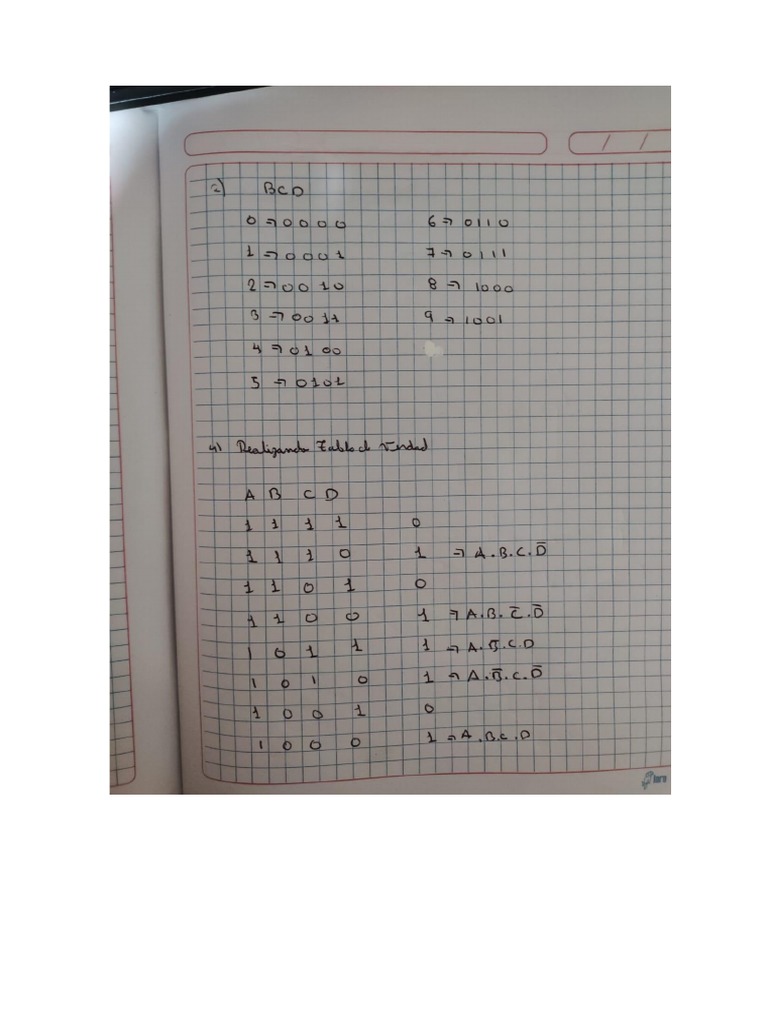 2) BCD
0 ⇒ 0 0 0 0 6 ⇒ 0110
1 ⇒ 0 0 0 1 7 ⇒ 0111
2 ⇒ 0 0 1 0 8 ⇒ 1000
3 ⇒ 0 0 1 1 9 ⇒ 1001
4 ⇒ 0 1 0 0
5 ⇒ 0 1 0 1
4) Realizando Tabla de Verdad
A B C D
1 1 1 1 0
1 1 1 0 1 ⇒ A.B.C.D̅
1 1 0 1 0
1 1 0 0 1 ⇒ A.B.C̅.D̅
1 0 1 1 1 ⇒ A.B̅.C.D
1 0 1 0 1 ⇒ A.B̅.C.D̅
1 0 0 1 0
1 0 0 0 1 ⇒ A.B.C.D